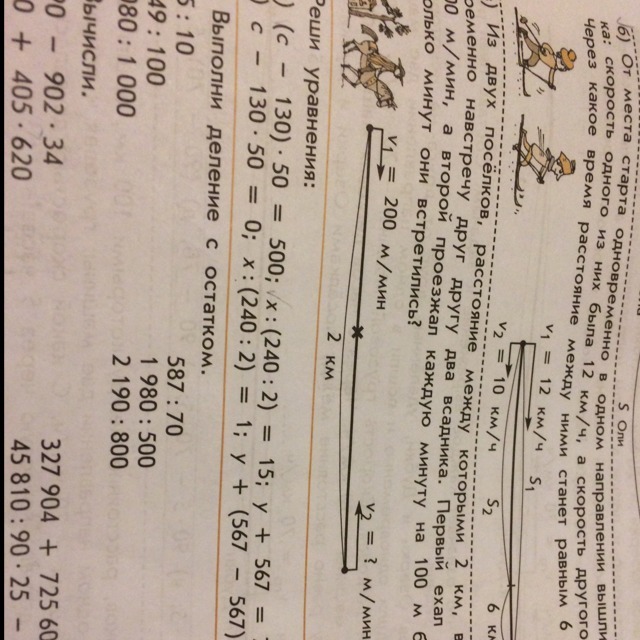 б) От места старта одновременно в одном направлении вышли
ка: скорость одного из них была 12 км/ч, а скорость другого
Через какое время расстояние между ними станет равным 6
S Оли
v₁ = 12 км/ч
S₁
v₂ = 10 км/ч
S₂
6 к
) Из двух посёлков, расстояние между которыми 2 км,
ременно навстречу друг другу два всадника. Первый ехал
00 м/мин, а второй проезжал каждую минуту на 100 м б
олько минут они встретились?
v₁ = 200 м/мин
v₂ = ? м/мин
2 км
Реши уравнения:
) (c − 130) · 50 = 500; x : (240 : 2) = 15; y + 567 =
) c − 130 · 50 = 0; x : (240 : 2) = 1; y + (567 − 567)
Выполни деление с остатком.
5 : 10
587 : 70
49 : 100
1 980 : 500
080 : 1 000
2 190 : 800
Вычисли.
00 − 902 · 34
327 904 + 725 60
0 + 405 · 620
45 810 : 90 · 25 −